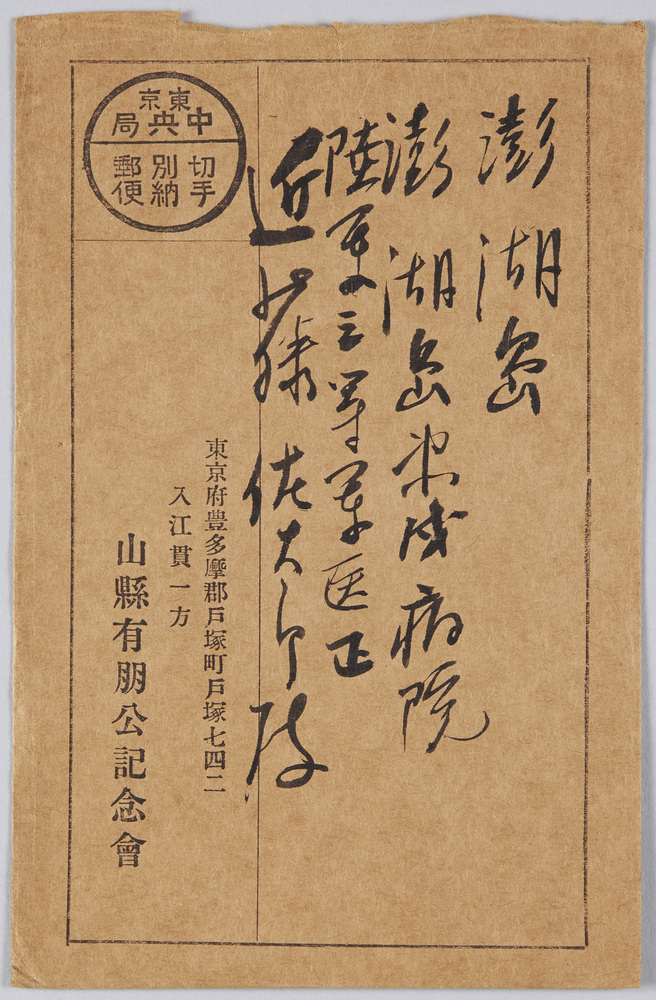 澎湖島
澎湖島衛戍病院
陸軍三等軍医正
近藤佐太郎殿
東京
中央局
切手
別納
郵便
東京府豊多摩郡戸塚町戸塚七四二
入江貫一方
山縣有朋公記念會